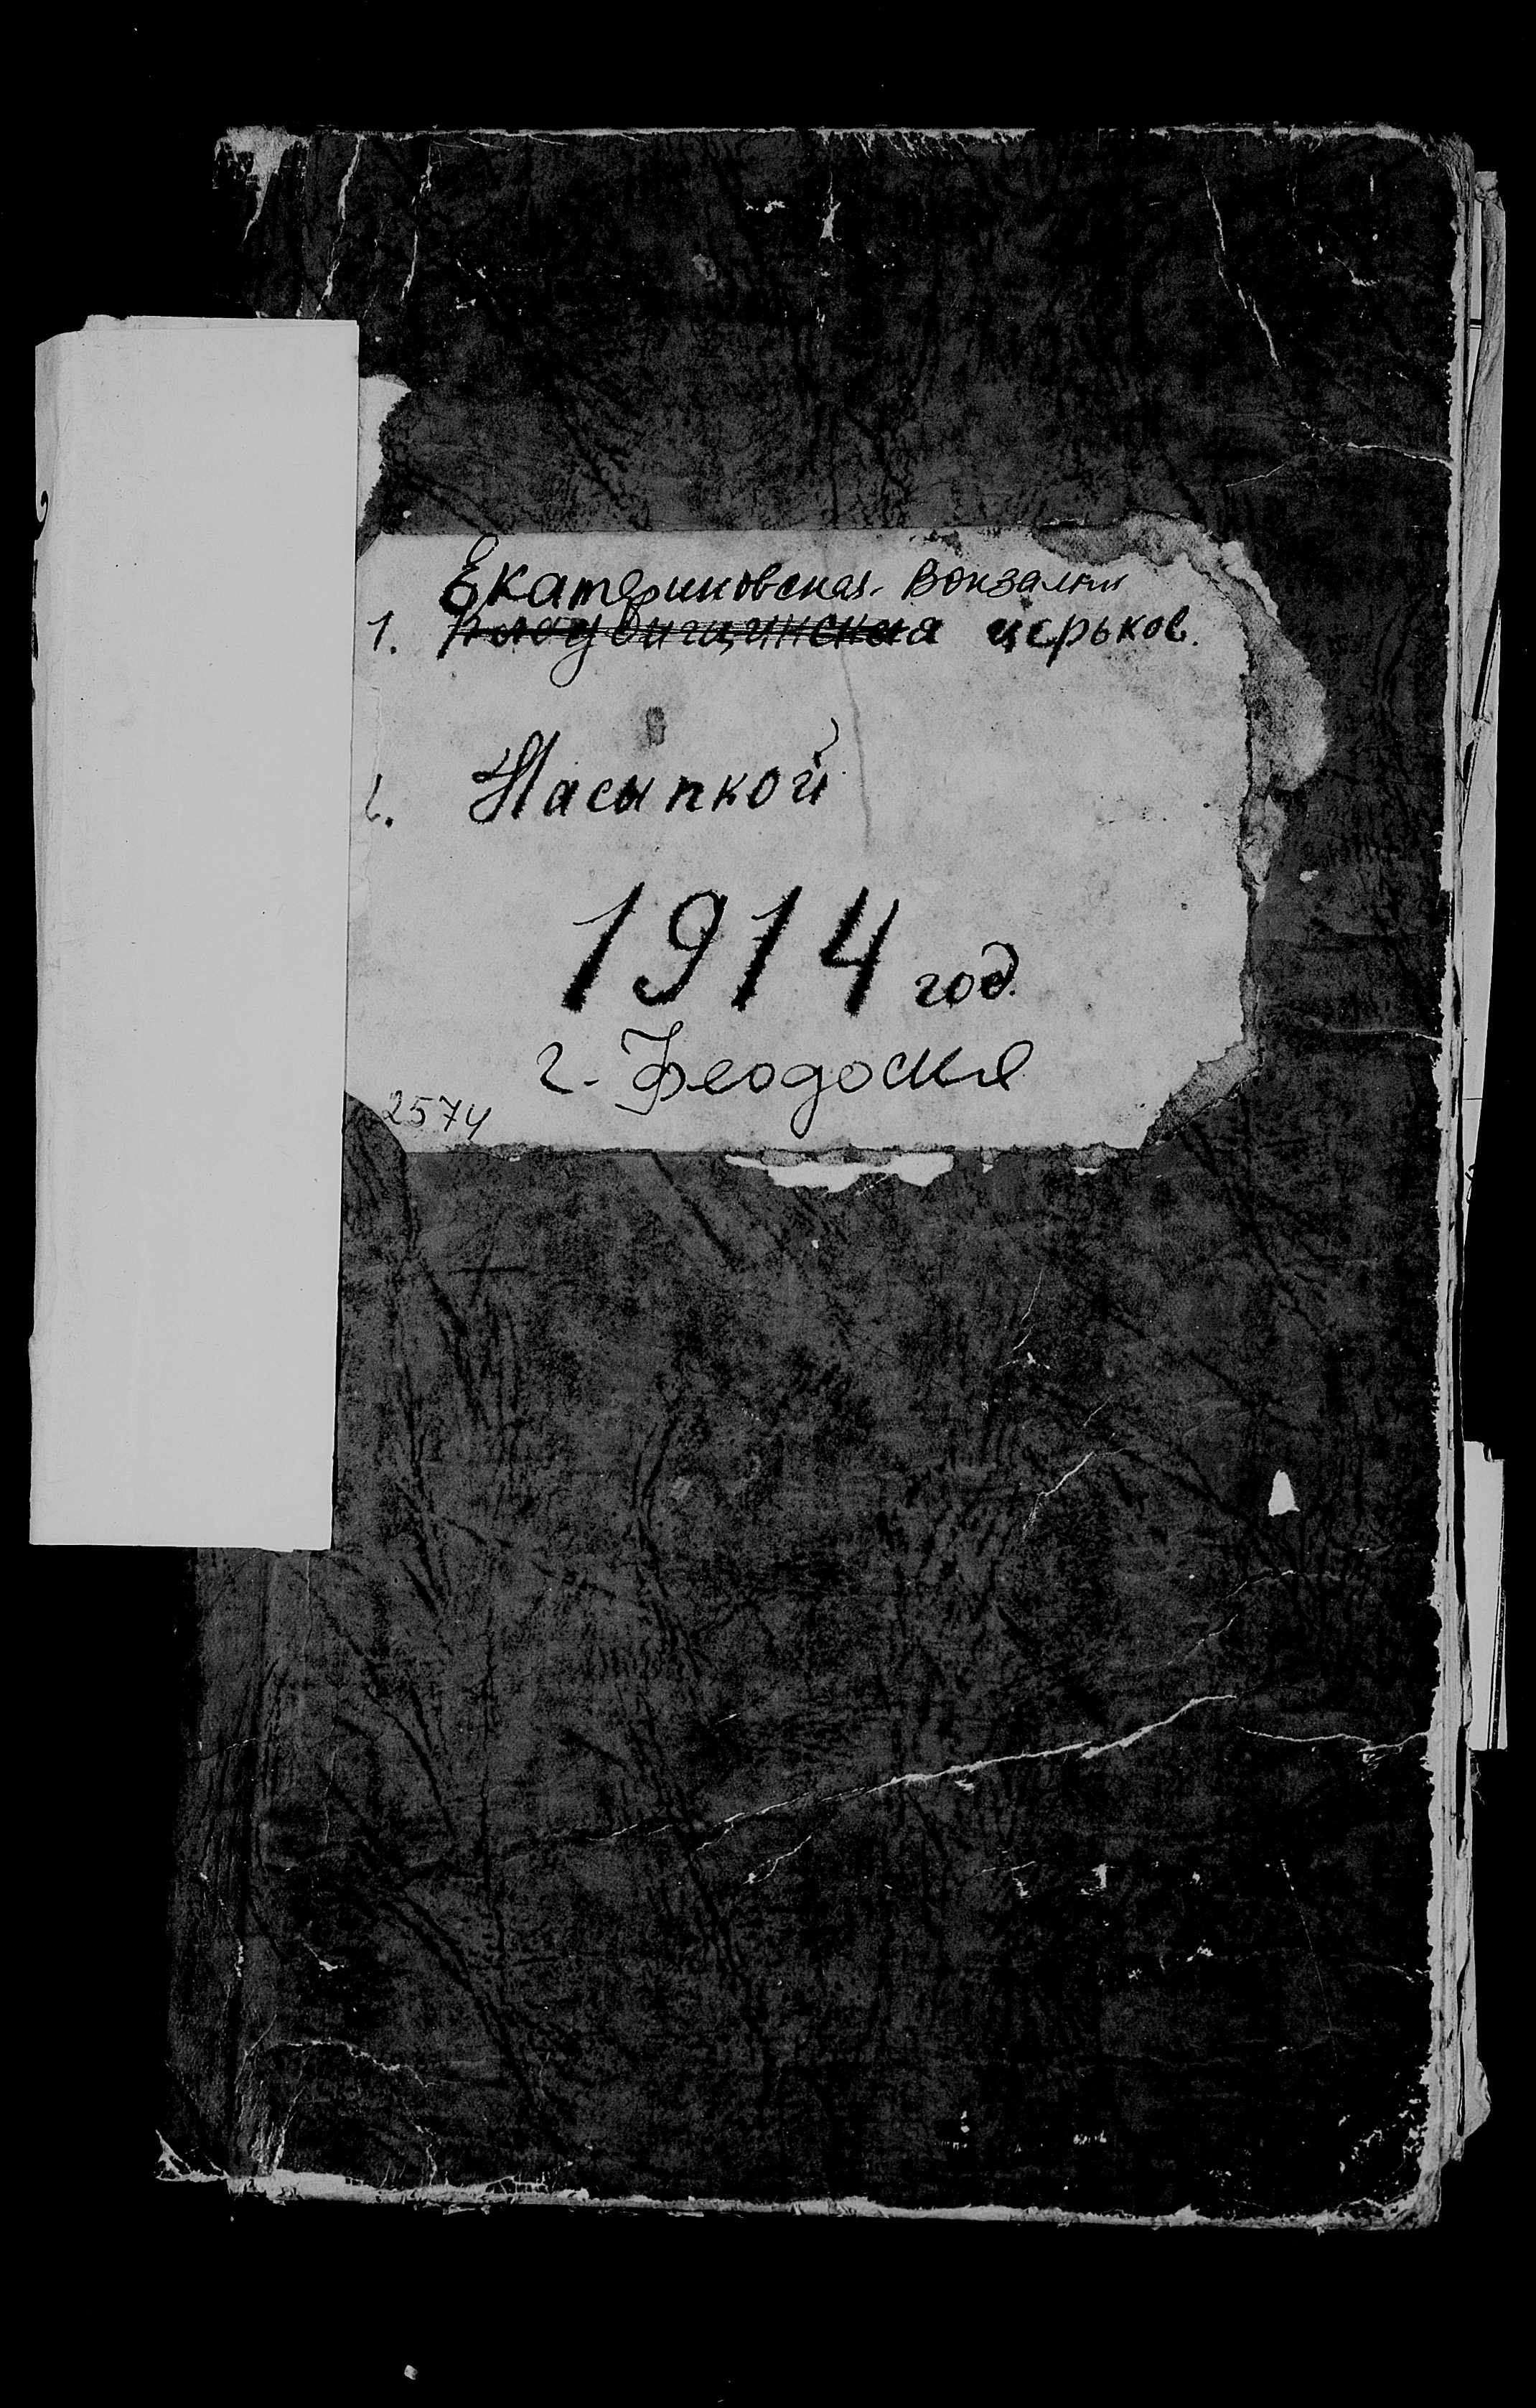 Екатериновская- Вокзальн
1. церьков.
2. Насыпкой
1914 год.
г. Феодосия
2574